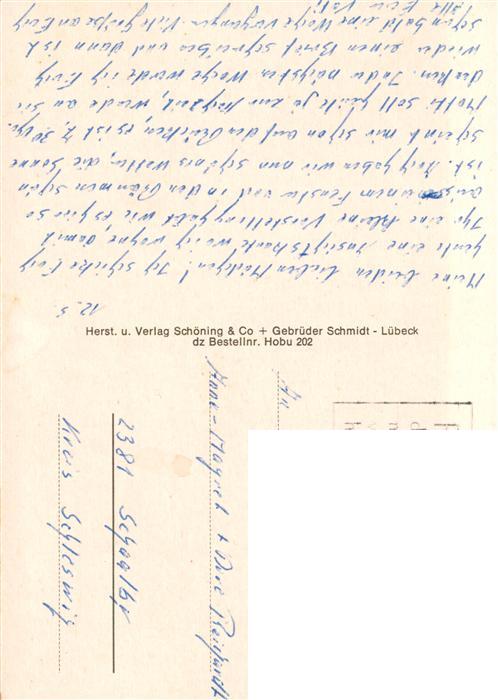 12. 5.
Meine beiden lieben Mädchen! Ich schicke Euch
heute eine Ansichtskarte worauf ich wohne, damit
Ihr eine kleine Vorstellung habt wie es hier so
ist. Heute haben wir nun schönes Wetter, die Sonne
scheint mir schon auf den Rücken, es ist 7.30 Uhr.
Mutti soll heute ja zur
denken. In der nächsten Woche werde ich Euch
wieder einen Brief schreiben und dann ist
schon bald eine Woche vergangen. Viele Grüße an Euch
alle Eure
Herst. u. Verlag Schöning & Co + Gebrüder Schmidt - Lübeck
dz Bestellnr. Hobu 202
An
Anne-Magret + Dörte Reichardt
2381 Schaalby
Kreis Schleswig